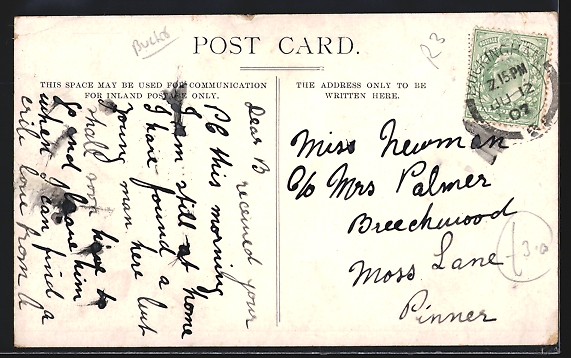 Bucks
POST CARD.
R3
THIS SPACE MAY BE USED FOR COMMUNICATION
FOR INLAND POSTAGE ONLY.
THE ADDRESS ONLY TO BE
WRITTEN HERE.
7.15 PM
12
07
Dear B received your
PC this morning
I am still at home
I have found a
young man here but
shall soon have to
go and leave him
when I can find a
love from A
Miss Newman
c/o Mrs Palmer
Breechwood
Moss Lane
Pinner
3.0